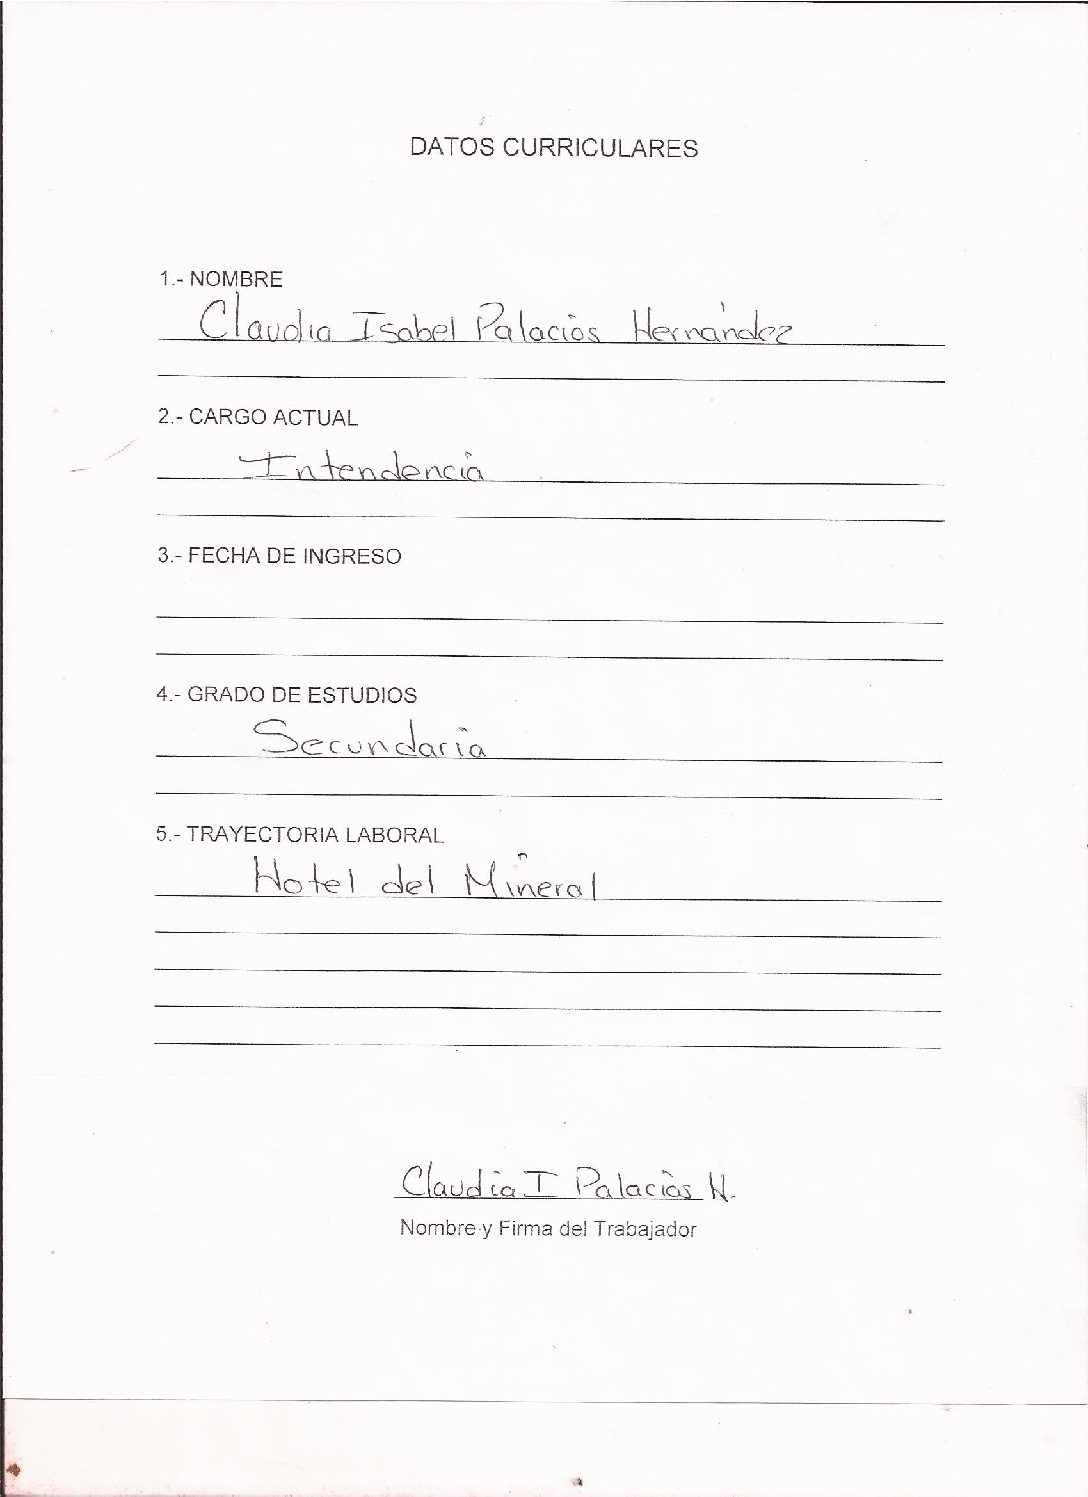 DATOS CURRICULARES
1.- NOMBRE
Claudia Isabel Palacios Hernández
2.- CARGO ACTUAL
Intendencia
3.- FECHA DE INGRESO
4.- GRADO DE ESTUDIOS
Secundaria
5.- TRAYECTORIA LABORAL
Hotel del Mineral
Claudia I Palacios H.
Nombre y Firma del Trabajador